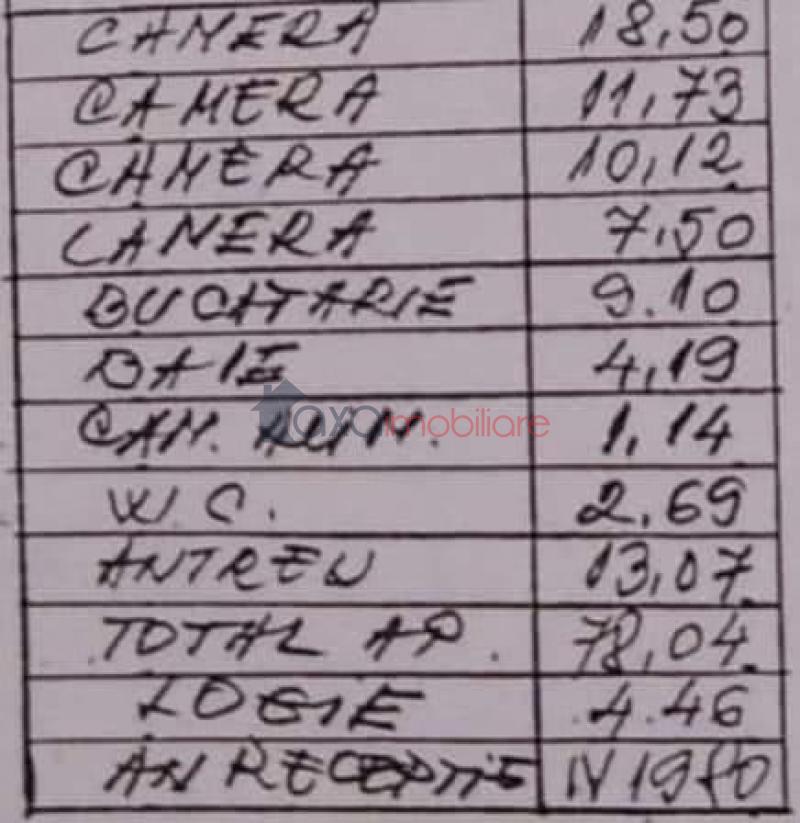 CAMERA 18,50
CAMERA 11,73
CAMERA 10,12
CAMERA 7,50
BUCATARIE 9.10
BAIE 4,19
CAM. ALIM. 1,14
W C. 2,69
ANTREU 13,07
TOTAL AP. 78,04
LOGIE 4.46
AN RECEPTIE IV 1980
OXAimobiliare